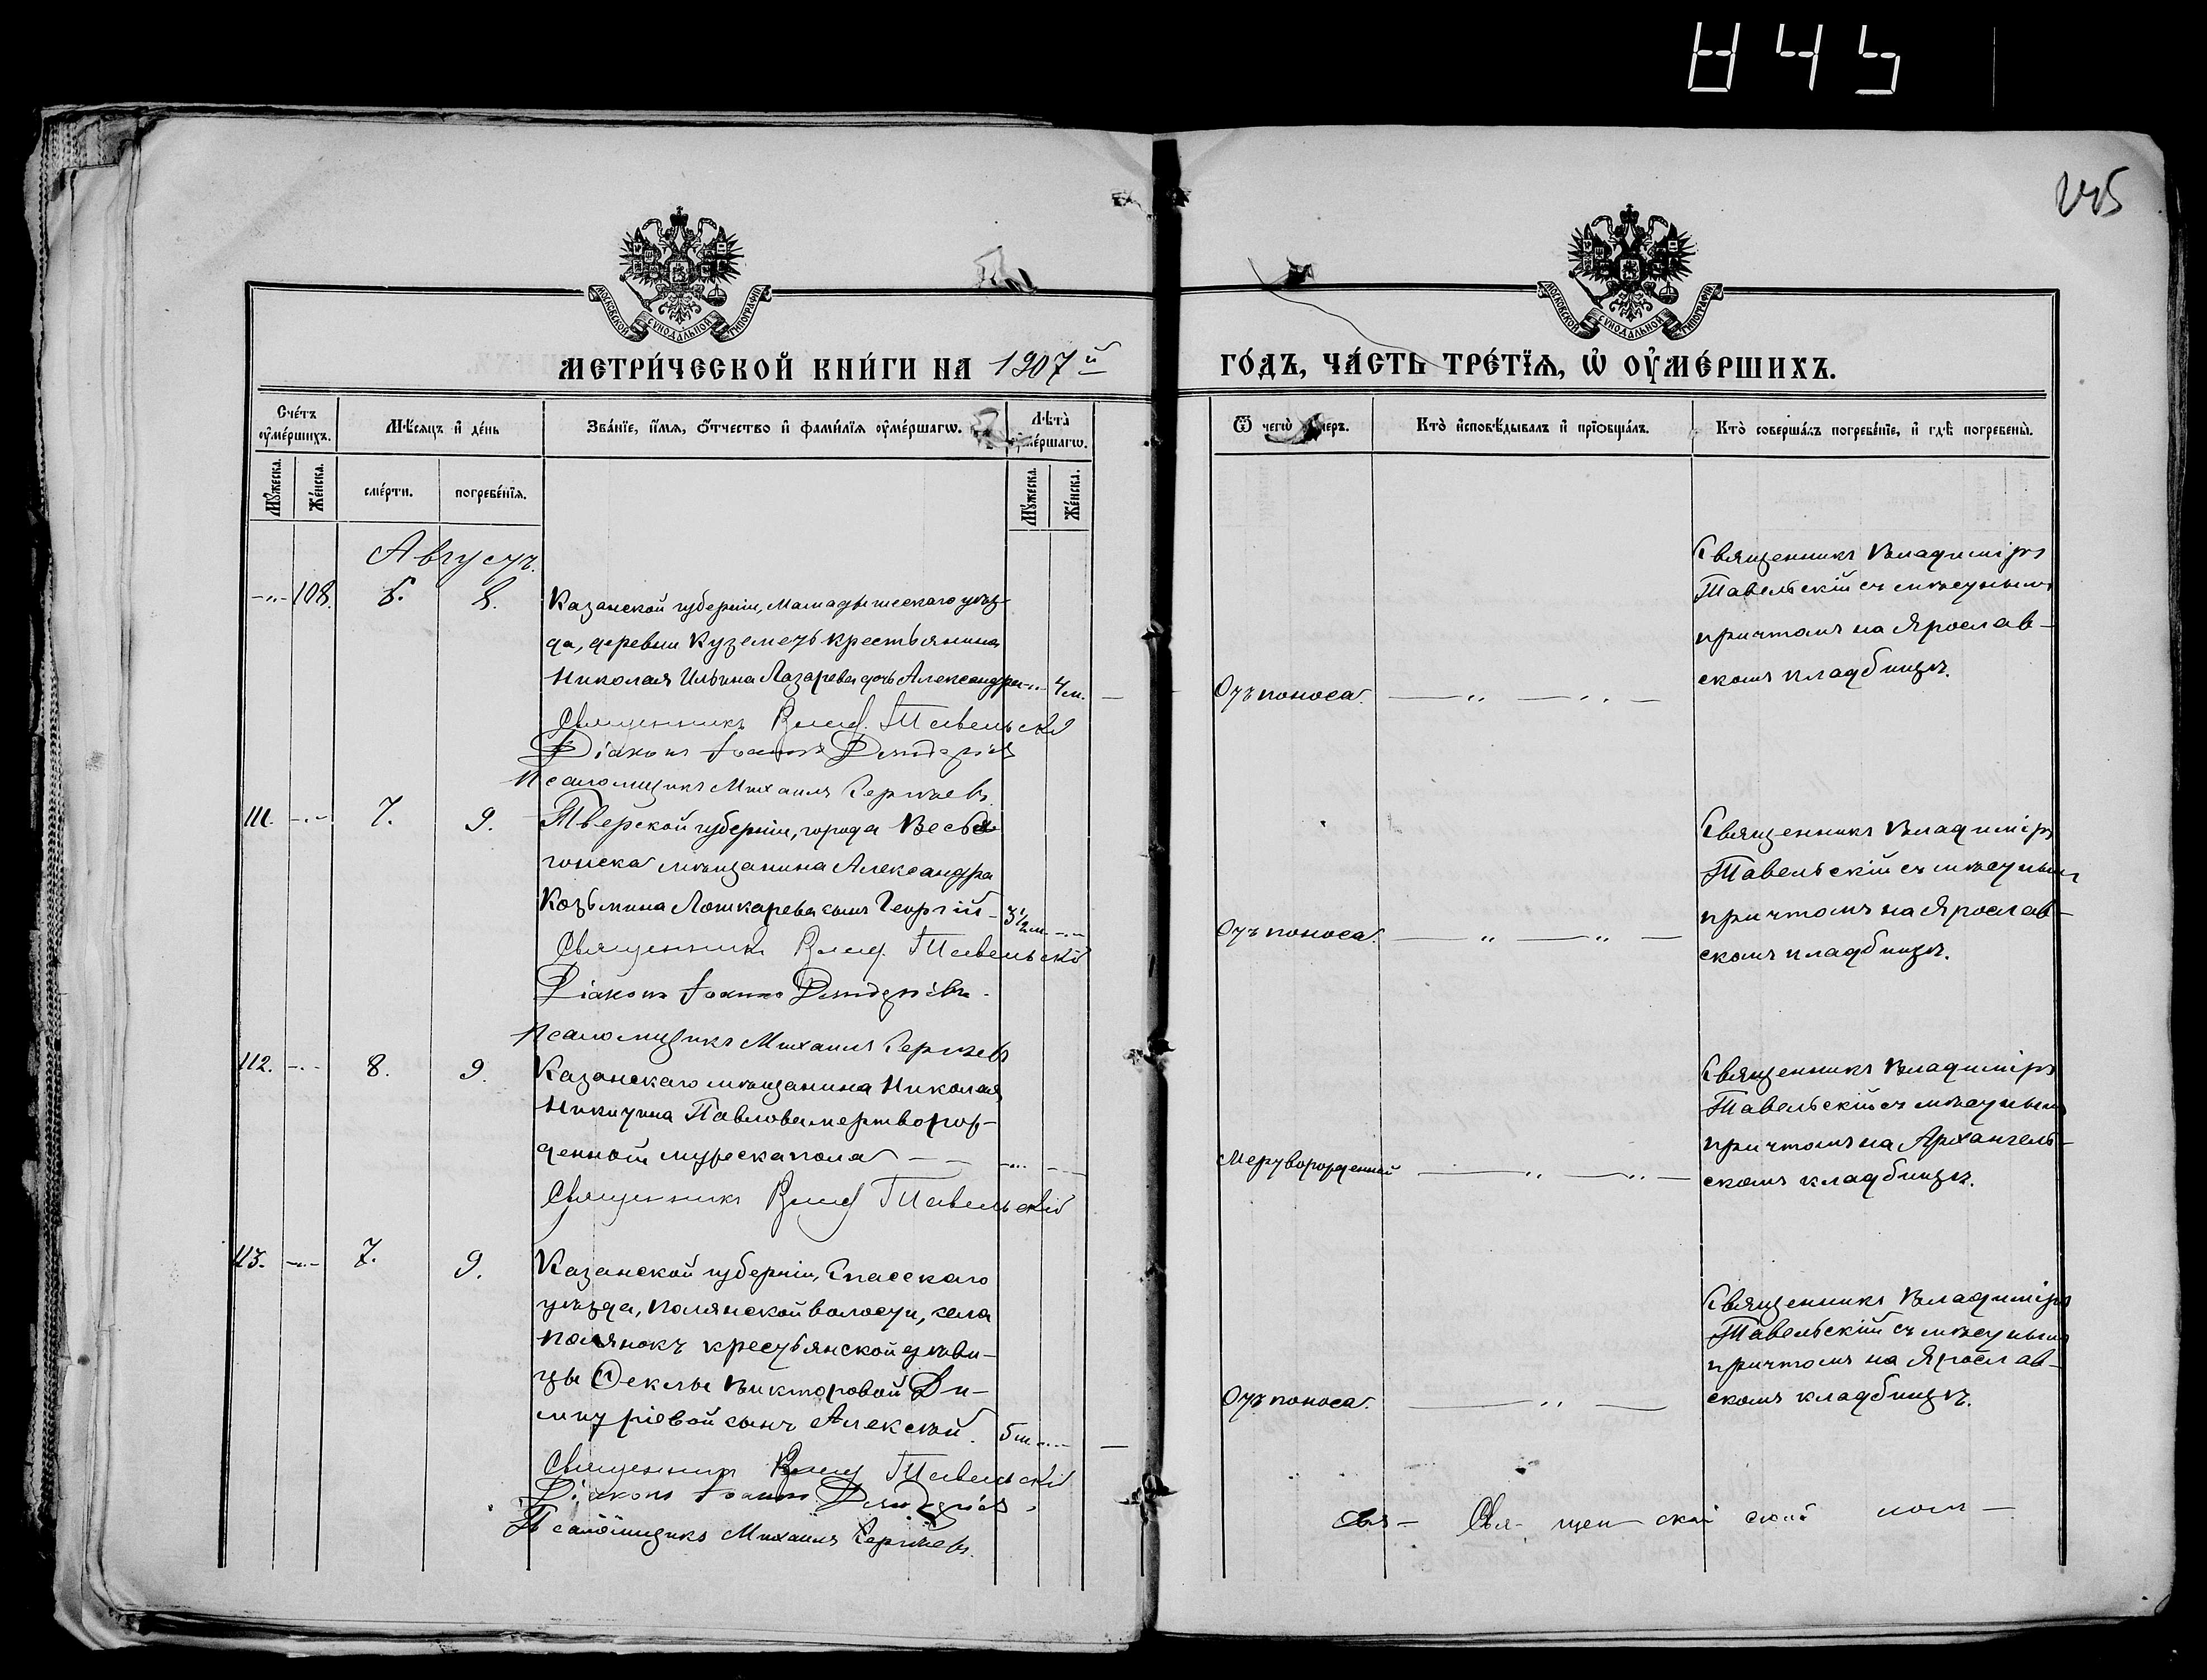 845
245
МОСКОВСКОЙ СѴНОДАЛЬНОЙ ТИПОГРАФІИ
МОСКОВСКОЙ СѴНОДАЛЬНОЙ ТИПОГРАФІИ
МЕТРИ́ЧЕСКОЙ КНИ́ГИ НА 1907й
ГО́ДЪ, ЧА́СТЬ ТРЕ́ТЇѦ, Ѡ҆ ОУ҆МЕ́РШИХЪ.
Сче́тъ оу҆ме́ршихъ.
Мѣ́сяцъ и҆ де́нь
Зва́нїе, и҆́мѧ, ѻ҆́тчество и҆ фами́лїѧ оу҆ме́ршагѡ.
Лѣ́та̀ оу҆ме́ршагѡ.
Ѿ чегѡ̀ оу҆́меръ.
Кто̀ и҆сповѣ́дывалъ и҆ прїѡбща́лъ.
Кто̀ соверша́лъ погребе́нїе, и҆ гдѣ̀ погребены̀.
Мꙋ́жеска.
Же́нска.
сме́рти.
погребе́нїѧ.
Мꙋ́жеска.
Же́нска.
Августъ.
-"- 108. 6. 8.
Казанской губерніи, Мамадышскаго уѣз-
да, деревни Куземечь крестьянина
Николая Ильина Лазарева дочь Александра -"- 4 м.
Священникъ Влад. Тавельскій
Діаконъ Іоаннъ
Псаломщикъ Михаилъ Сергѣевъ.
Отъ поноса.
Священникъ Владиміръ
Тавельскій съ мѣстнымъ
причтомъ на Ярослав-
скомъ кладбищѣ.
111. -"- 7. 9.
Тверской губерніи, города Весье-
гонска мѣщанина Александра
Козьмина Лошкарева сынъ Георгій - 3½ м. -"-
Священникъ Влад. Тавельскій
Діаконъ Іоаннъ
Псаломщикъ Михаилъ Сергѣевъ
Отъ поноса.
Священникъ Владиміръ
Тавельскій съ мѣстнымъ
причтомъ на Ярослав-
скомъ кладбищѣ.
112. -"- 8. 9.
Казанскаго мѣщанина Николая
Никитина Павлова мертворож-
денной мужеска пола
Священникъ Влад Тавельскій
Мертворожденной
Священникъ Владиміръ
Тавельскій съ мѣстнымъ
причтомъ на Архангель-
скомъ кладбищѣ.
113. -"- 7. 9.
Казанской губерніи, Спасскаго
уѣзда, Полянской волости, села
Полянокъ крестьянской дѣви-
цы Ѳеклы Викторовой Ди-
митріевой сынъ Алексѣй. 5 м. -"-
Священникъ Влад Тавельскій
Діаконъ Іоаннъ
Псаломщикъ Михаилъ Сергѣевъ.
Отъ поноса.
Священникъ Владиміръ
Тавельскій съ мѣстнымъ
причтомъ на Ярослав-
скомъ кладбищѣ.
Свя- щен ской